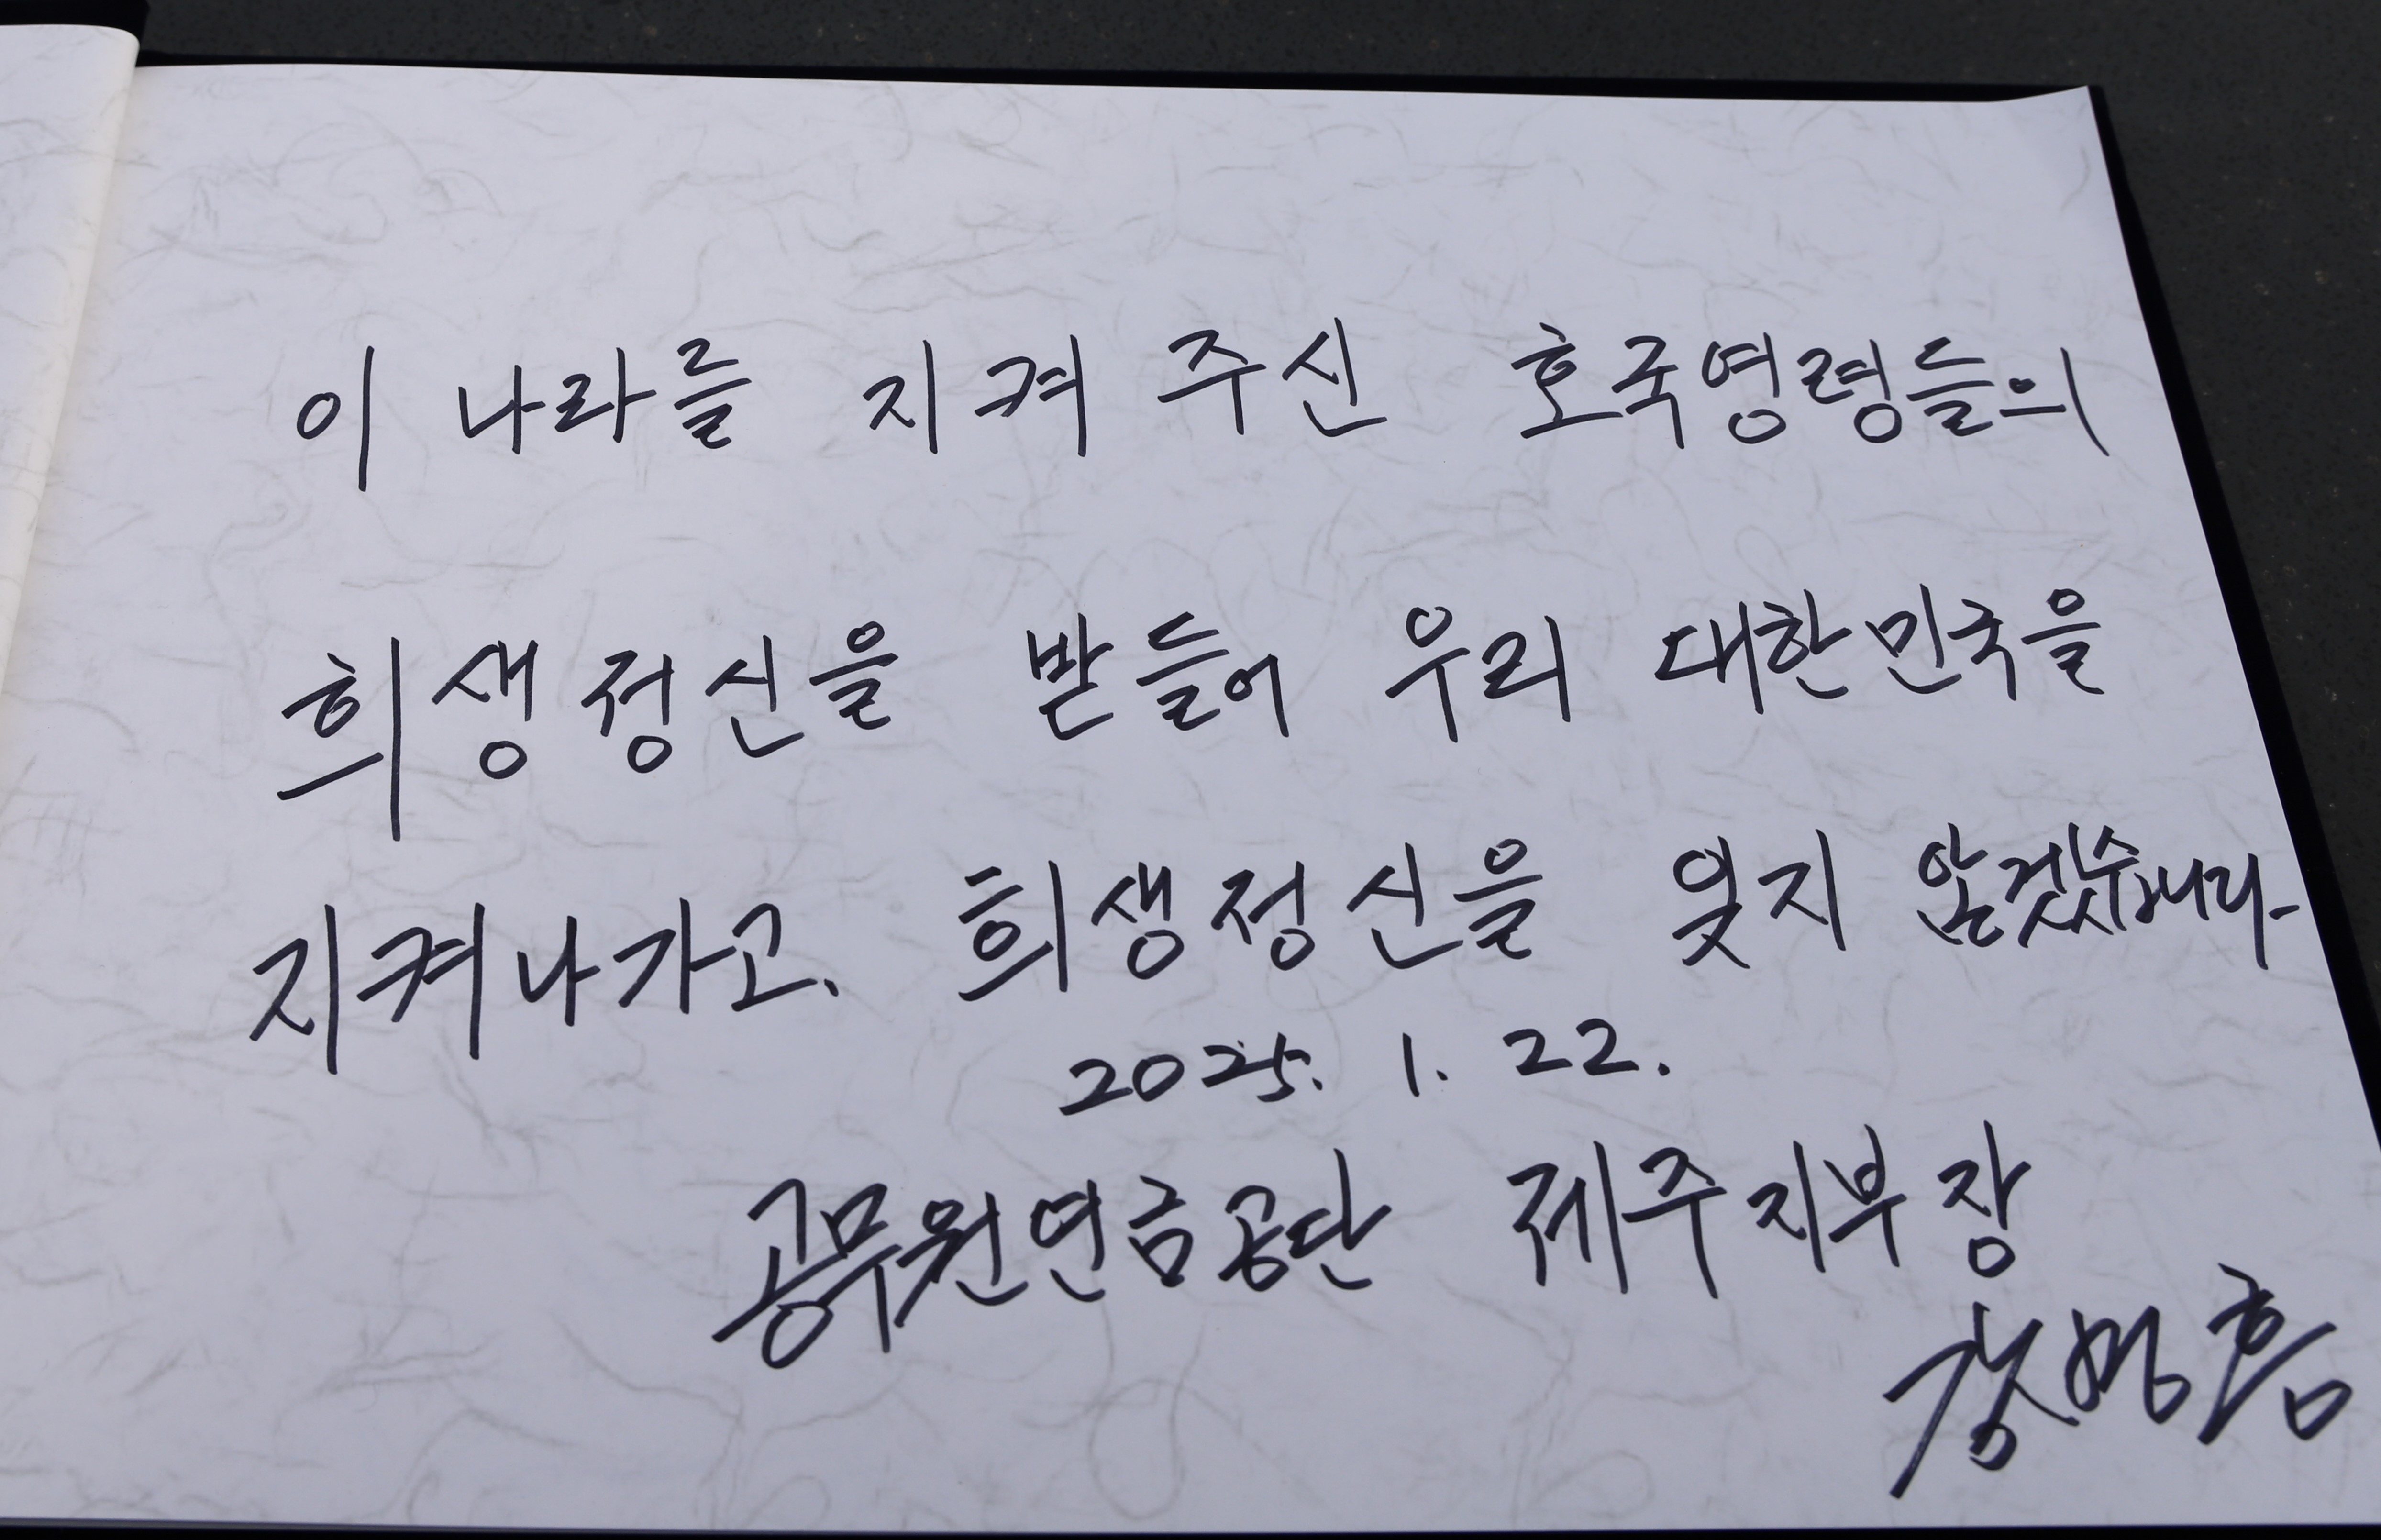 이 나라를 지켜 주신 호국영령들의
희생정신을 받들어 우리 대한민국을
지켜나가고, 희생정신을 잊지 않겠습니다
2025. 1. 22.
공무원연금공단 제주지부장